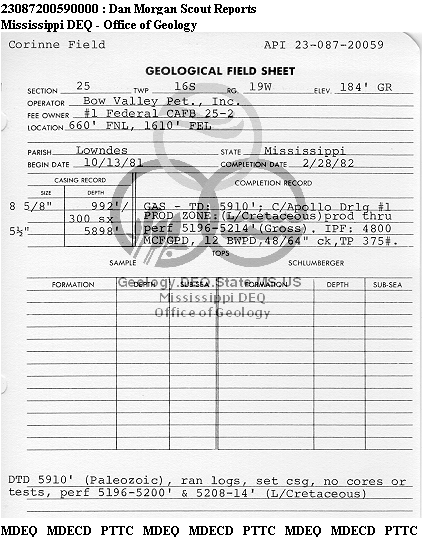 23087200590000 : Dan Morgan Scout Reports
Mississippi DEQ - Office of Geology
Corinne Field API 23-087-20059
GEOLOGICAL FIELD SHEET
SECTION 25 TWP 16S RG. 19W ELEV. 184' GR
OPERATOR Bow Valley Pet., Inc.
FEE OWNER #1 Federal CAFB 25-2
LOCATION 660' FNL, 1610' FEL
PARISH Lowndes STATE Mississippi
BEGIN DATE 10/13/81 COMPLETION DATE 2/28/82
CASING RECORD COMPLETION RECORD
SIZE DEPTH
8 5/8" 992'/ GAS - TD: 5910'; C/Apollo Drlg #1
300 sx PROD ZONE:(L/Cretaceous)prod thru
5½" 5898' perf 5196-5214'(Gross). IPF: 4800
MCFGPD, 12 BWPD,48/64" ck,TP 375#.
TOPS
SAMPLE SCHLUMBERGER
Geology.DEQ.State.MS.US
FORMATION DEPTH SUB-SEA FORMATION DEPTH SUB-SEA
Mississippi DEQ
Office of Geology
DTD 5910' (Paleozoic), ran logs, set csg, no cores or
tests, perf 5196-5200' & 5208-14' (L/Cretaceous)
MDEQ MDECD PTTC MDEQ MDECD PTTC MDEQ MDECD PTTC